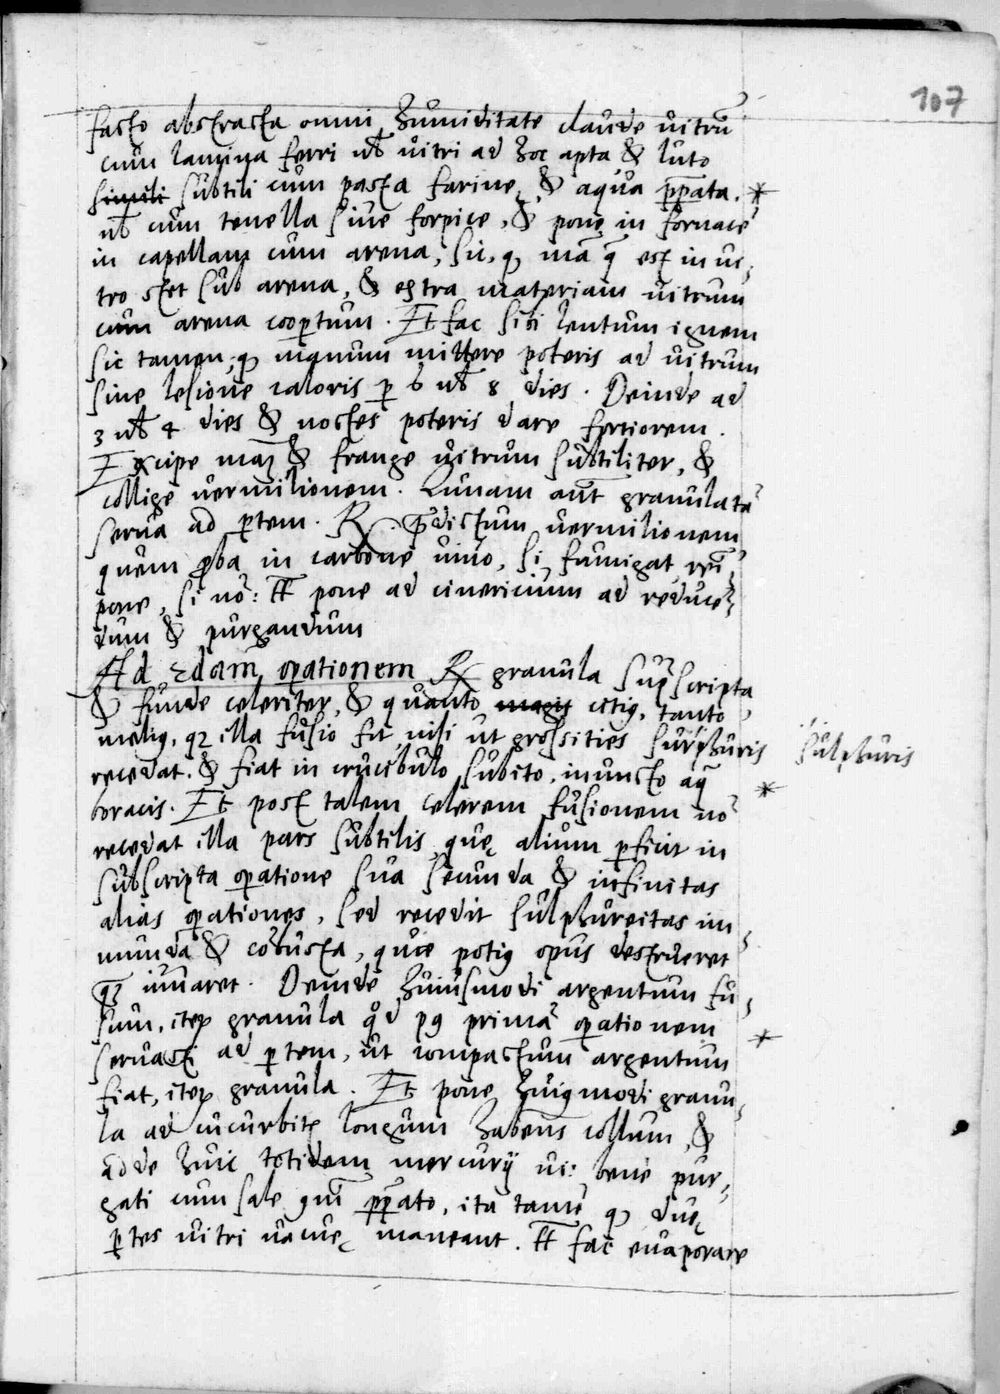 107
facto abstracta omni humiditate claude uitrũ
cum lamina ferri ul̃ uitri ad hoc apta & luto
simili subtili cum pasta farinę & aqua pp̃ata. *
ul̃ cum tenella siue forpice, & pone in fornacẽ
in capellam cum arena, sic, ꝙ mã q̃ est in ui,
tro stet sub arena, & extra materiam uitrum
cum arena coopertum. Et fac sibi lentum ignem
sic tamen, ꝙ manum mittere poteris ad uitrum
sine lesione caloris ꝑ 6 ul̃ 8 dies. Deinde ad
3 ul̃ 4 dies & noctes poteris dare fortiorem.
Excipe & frange uitrum subtiliter, &
collige vermilionem. Lunam aũt granulatã
serua ad ꝑtem. ℞. p̃dictum vermilionem
quem ꝓba in carbone uiuo, si fumigat
pone, si nõ: pone ad cinericium ad reducẽ,
dum & purgandum
Ad 2dam oꝑationem ℞ granula sup̃scripta
& funde celeriter, & quanto magis citiꝰ, tanto
meliꝰ, qꝫ illa fusio fit, nisi ut grossities surphuris sulphuris
recedat. & fiat in crucibulo subito, inuncto aq̃ *
boracis. Et post talem celerem fusionem nõ
recedat illa pars subtilis quę alium ꝑficit in
subscripta oꝑatione sua secunda & infinitas
alias oꝑationes, sed recedit sulphureitas im,
munda & cõbusta, quae potiꝰ opus destrueret
qꝫ iuuaret. Deinde huiusmodi argentum fu,
sum, iteꝝ granula qd̃ pꝰ primã oꝑationem *
seruasti ad ꝑtem, ut compactum argentum
fiat, iteꝝ granula. Et pone huiꝰmodi granu,
la ad cucurbitę longum habens collum, &
adde huic totidem mercurij ui: bene pur,
gati cum sale pp̃ato, ita tamẽ ꝙ duę
ꝑtes uitri uacuę maneant. fac euaporare